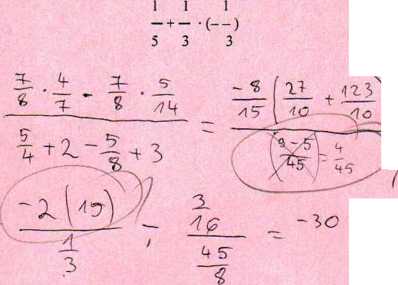 1/5 + 1/3 · (-- 1/3)
(7/8 · 4/7 - 7/8 · 5/14) / (5/4 + 2 - 5/8 + 3) = -8/15 (27/10 + 123/10) / ((9-5)/45 = 4/45)
-2(19) / (1/3) ; (3/16) / (45/8) = -30